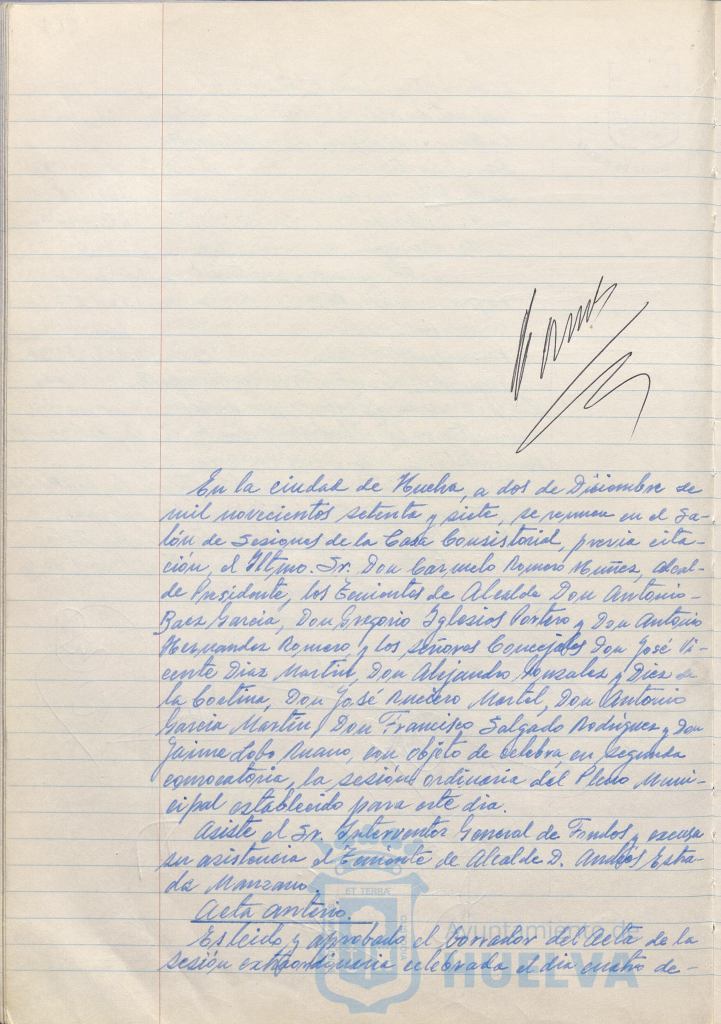 En la ciudad de Huelva, a dos de Diciembre de
mil novecientos setenta y siete, se reunen en el Sa-
lón de Sesiones de la Casa Consistorial, previa cita-
ción, el Iltmo. Sr. Don Carmelo Romero Núñez, Alcal-
de Presidente, los Tenientes de Alcalde Don Antonio-
Baez Garcia, Don Gregorio Iglesias Portero y Don Antonio
Hernandez Romero, y los señores Concejales Don José Vi-
cente Diaz Martin, Don Alejandro Gonzalez y Diez de
la Cortina, Don José Mortel, Don Antonio
Garcia Martin, Don Francisco Salgado Rodriguez y Don
Jaime Lobo Ruano, con objeto de celebra, en segunda
convocatoria, la sesión ordineria del Pleno Muni-
cipal establecido para este dia.
Asiste el Sr. Interventor General de Fondos y excusa
su asistencia el Teniente de Alcalde D. Andrés Estra-
da Manzano.
Acta anterio.
Es leido y aprobado el borrador del acta de la
sesión celebrada el dia cuatro de-
ET TERRÆ
Ayuntamiento de
HUELVA